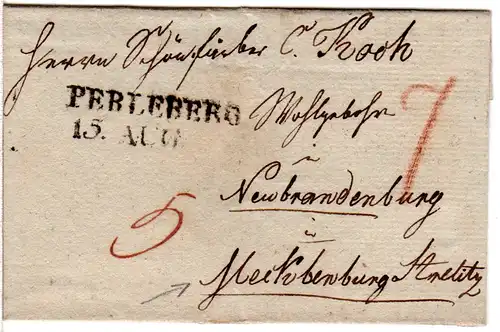 Herrn Schönfärber C. Koch
PERLEBERG
15. AUG.
Wohlgebohr
7
in
Neubrandenburg
5
in
Mecklbenburg Strelitz